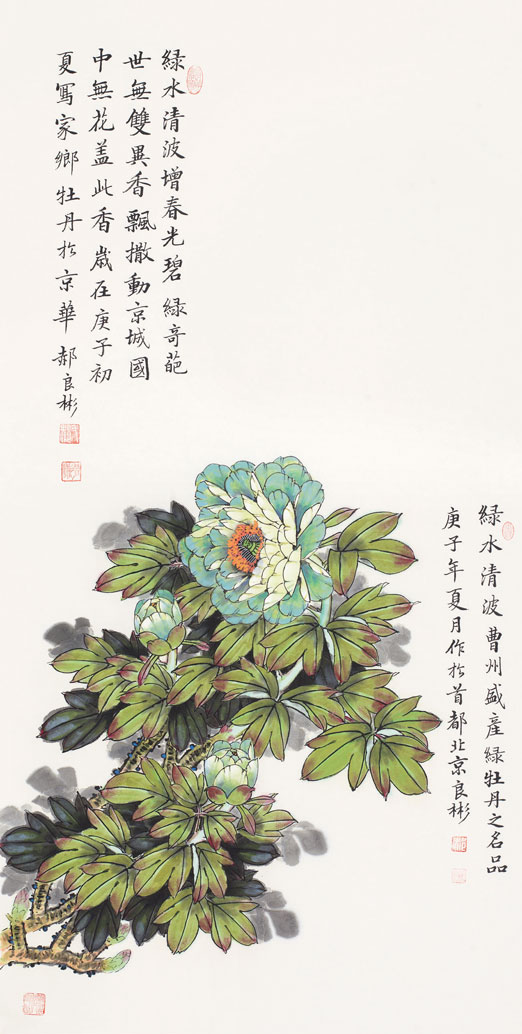 綠水清波增春光碧綠奇葩
世無雙異香飄撒動京城國
中無花盖此香歳在庚子初
夏寫家鄉牡丹於京華 郝良彬
綠水清波曹州盛產綠牡丹之名品
庚子年夏月作於首都北京良彬